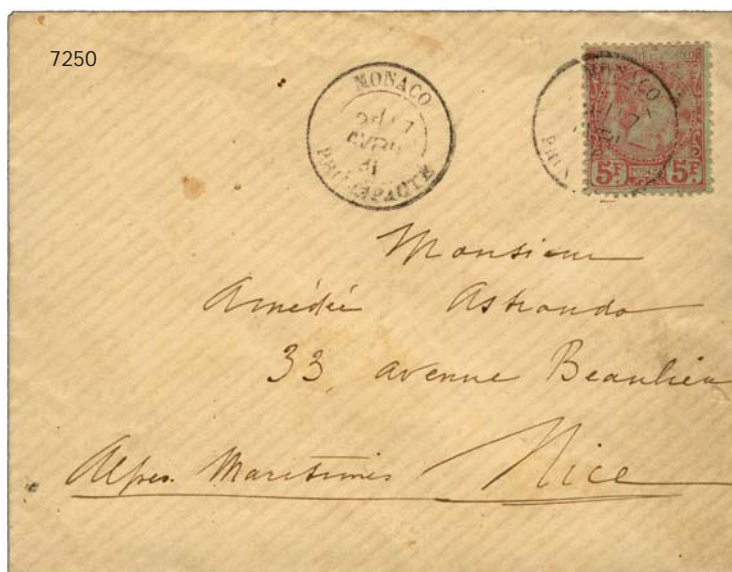 7250
MONACO
AVRIL
MONACO
5F 5F
Monsieur
Amédée Astraudo
33, avenue Beaulieu
Alpes Maritimes Nice